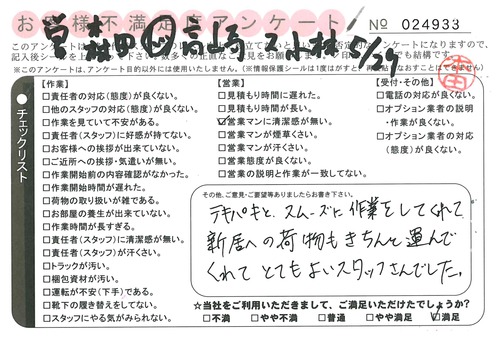 お客様不満足度アンケート
№ 024933
営 森田 高崎 7/29
【作業】
□責任者の対応(態度)が良くない。
□他のスタッフの対応(態度)が良くない。
□作業を見ていて不安がある。
□責任者(スタッフ)に好感が持てない。
□お客様への挨拶が出来ていない。
□ご近所への挨拶・気遣いが無い。
□作業開始前の内容確認がなかった。
□作業開始時間が遅れた。
□荷物の取り扱いが雑である。
□お部屋の養生が出来ていない。
□作業時間が長すぎる。
□責任者(スタッフ)に清潔感が無い。
□責任者(スタッフ)が汗くさい。
□トラックが汚い。
□梱包資材が汚い。
□運転が不安(下手)である。
□靴下の履き替えをしてない。
□スタッフにやる気がみられない。
【営業】
□見積もり時間に遅れた。
□見積もり時間が長い。
☑営業マンに清潔感が無い。
□営業マンが煙草くさい。
□営業マンが汗くさい。
□営業態度が良くない。
□営業の説明と作業が一致してない。
【受付・その他】
□電話の対応が良くない。
□オプション業者の説明
・作業が良くない。
□オプション業者の対応
(態度)が良くない。
チェックリスト
その他、ご意見・ご要望等ありましたらお書き下さい。
テキパキと、スムーズに作業をしてくれて
新居への荷物もきちんと運んで
くれてとてもよいスタッフさんでした。
☆当社をご利用いただきまして、ご満足いただけたでしょうか?
□不満 □やや不満 □普通 □やや満足 ☑満足